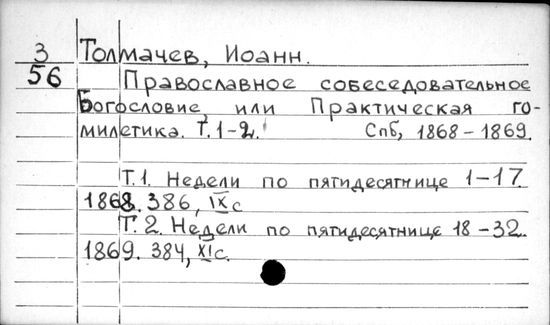 3 Толмачев, Иоанн.
56 Православное собеседовательное
Богословие или Практическая го-
милетика. Т. 1-2. Спб, 1868-1869.
Т.1. Недели по пятидесятнице 1-17.
1868. 386, IX с
Т.2. Недели по пятидесятнице 18-32.
1869. 384, XI с.